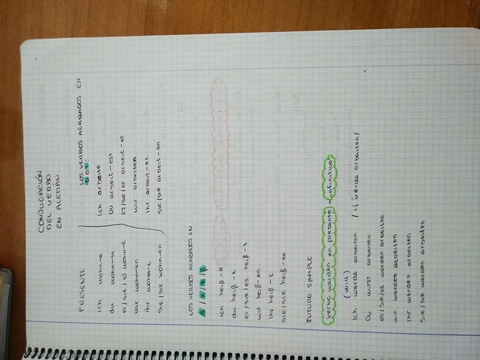 CONJUGACIÓN
DEL VERBO
EN ALEMÁN
PRESENTE
ich wohn-e
du wohn-st
er/sie/es wohn-t
wir wohn-en
ihr wohn-t
sie/sie wohn-en
LOS VERBOS ACABADOS EN
Ich arbeite
Du arbeit-est
er/sie/es arbeit-et
wir arbeiten
ihr arbeit-et
sie/sie arbeit-en
LOS VERBOS ACABADOS EN
ich heiß-e
du heiß-t
er/sie/es heiß-t
wir heiß-en
ihr heiß-t
sie/sie heiß-en
FUTURO SIMPLE
verbo werden en presente + infinitivo
(will)
Ich werde arbeiten
Du wirst arbeiten
er/sie/es werden arbeiten
wir werden arbeiten
ihr werden arbeiten
sie/sie werden arbeiten